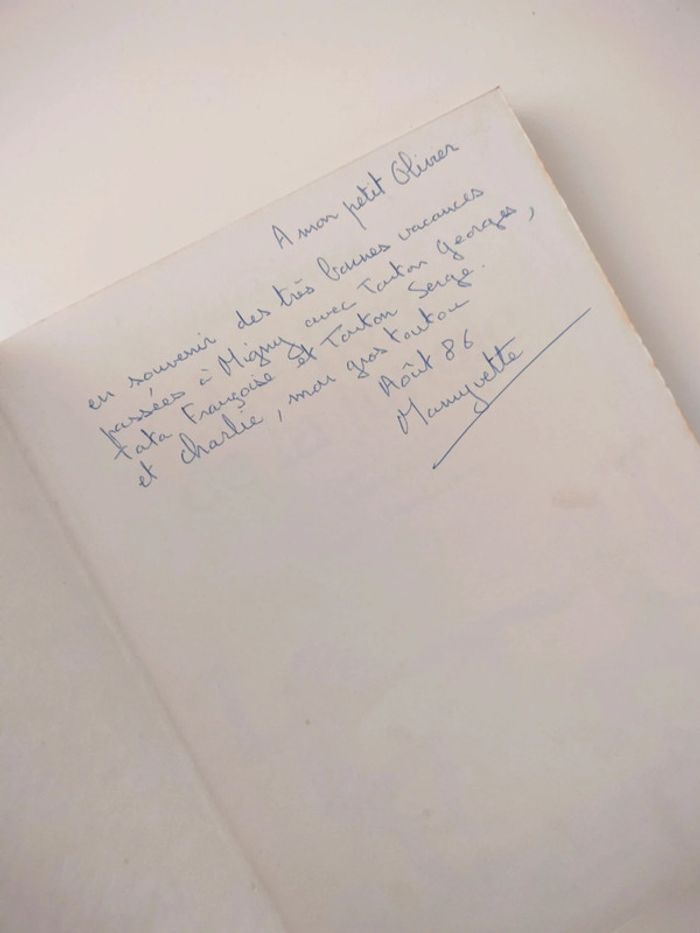 A mon petit Olivier
en souvenir des très bonnes vacances
passées à Migny avec Tonton Georges,
tata Françoise et Tonton Serge.
et charlie, mon gros toutou
Août 86
Mamyvette